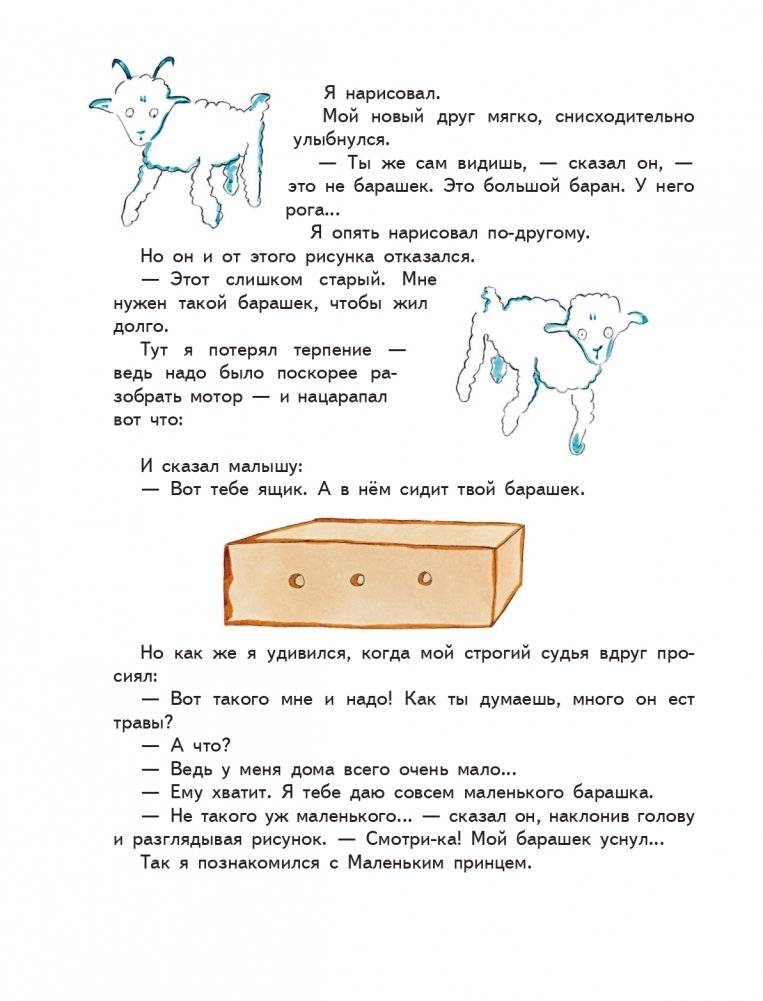 Я нарисовал.
Мой новый друг мягко, снисходительно
улыбнулся.
— Ты же сам видишь, — сказал он, —
это не барашек. Это большой баран. У него
рога...
Я опять нарисовал по-другому.
Но он и от этого рисунка отказался.
— Этот слишком старый. Мне
нужен такой барашек, чтобы жил
долго.
Тут я потерял терпение —
ведь надо было поскорее ра-
зобрать мотор — и нацарапал
вот что:
И сказал малышу:
— Вот тебе ящик. А в нём сидит твой барашек.
Но как же я удивился, когда мой строгий судья вдруг про-
сиял:
— Вот такого мне и надо! Как ты думаешь, много он ест
травы?
— А что?
— Ведь у меня дома всего очень мало...
— Ему хватит. Я тебе даю совсем маленького барашка.
— Не такого уж маленького... — сказал он, наклонив голову
и разглядывая рисунок. — Смотри-ка! Мой барашек уснул...
Так я познакомился с Маленьким принцем.